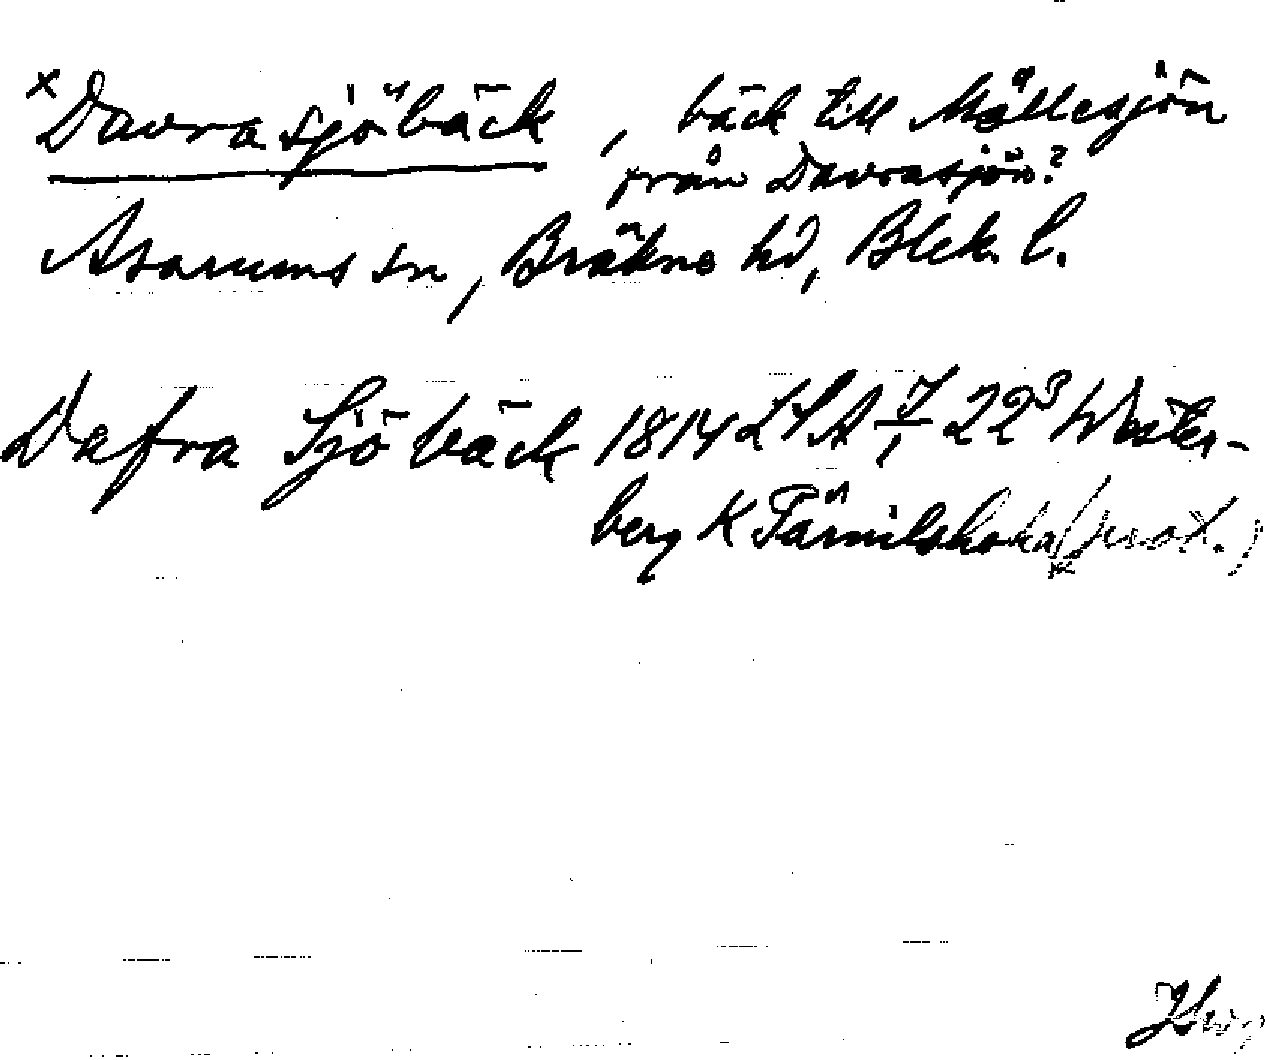 x Davrasjöbäck, bäck till Möllesjön
från Davrasjön?
Asarums sn, Bräkne hd, Blek. l.
Dafra Sjö bäck 1814 LSA 7/1 22³ Wester-
berg K Tärnilshoka (prot.)